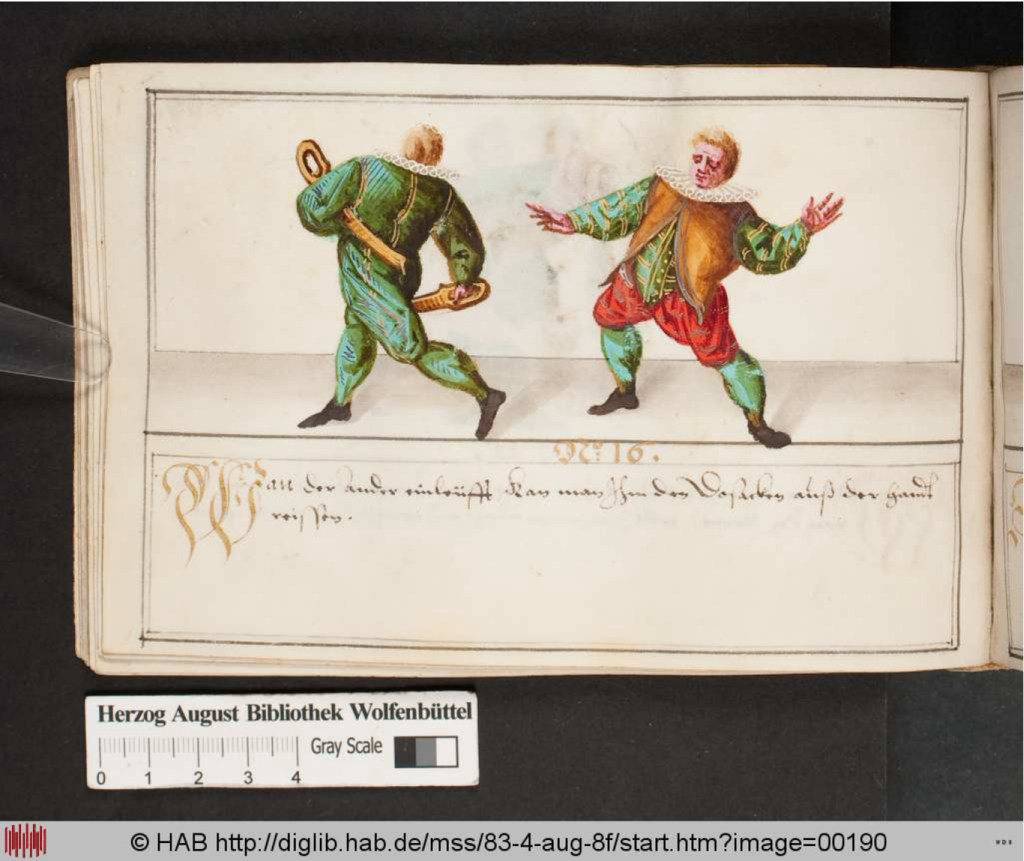 No: 16.
Wan der Ander einleüfft, Kan man Ihm den Dosacken auß der handt
reissen.
Herzog August Bibliothek Wolfenbüttel
Gray Scale
0 1 2 3 4
© HAB http://diglib.hab.de/mss/83-4-aug-8f/start.htm?image=00190